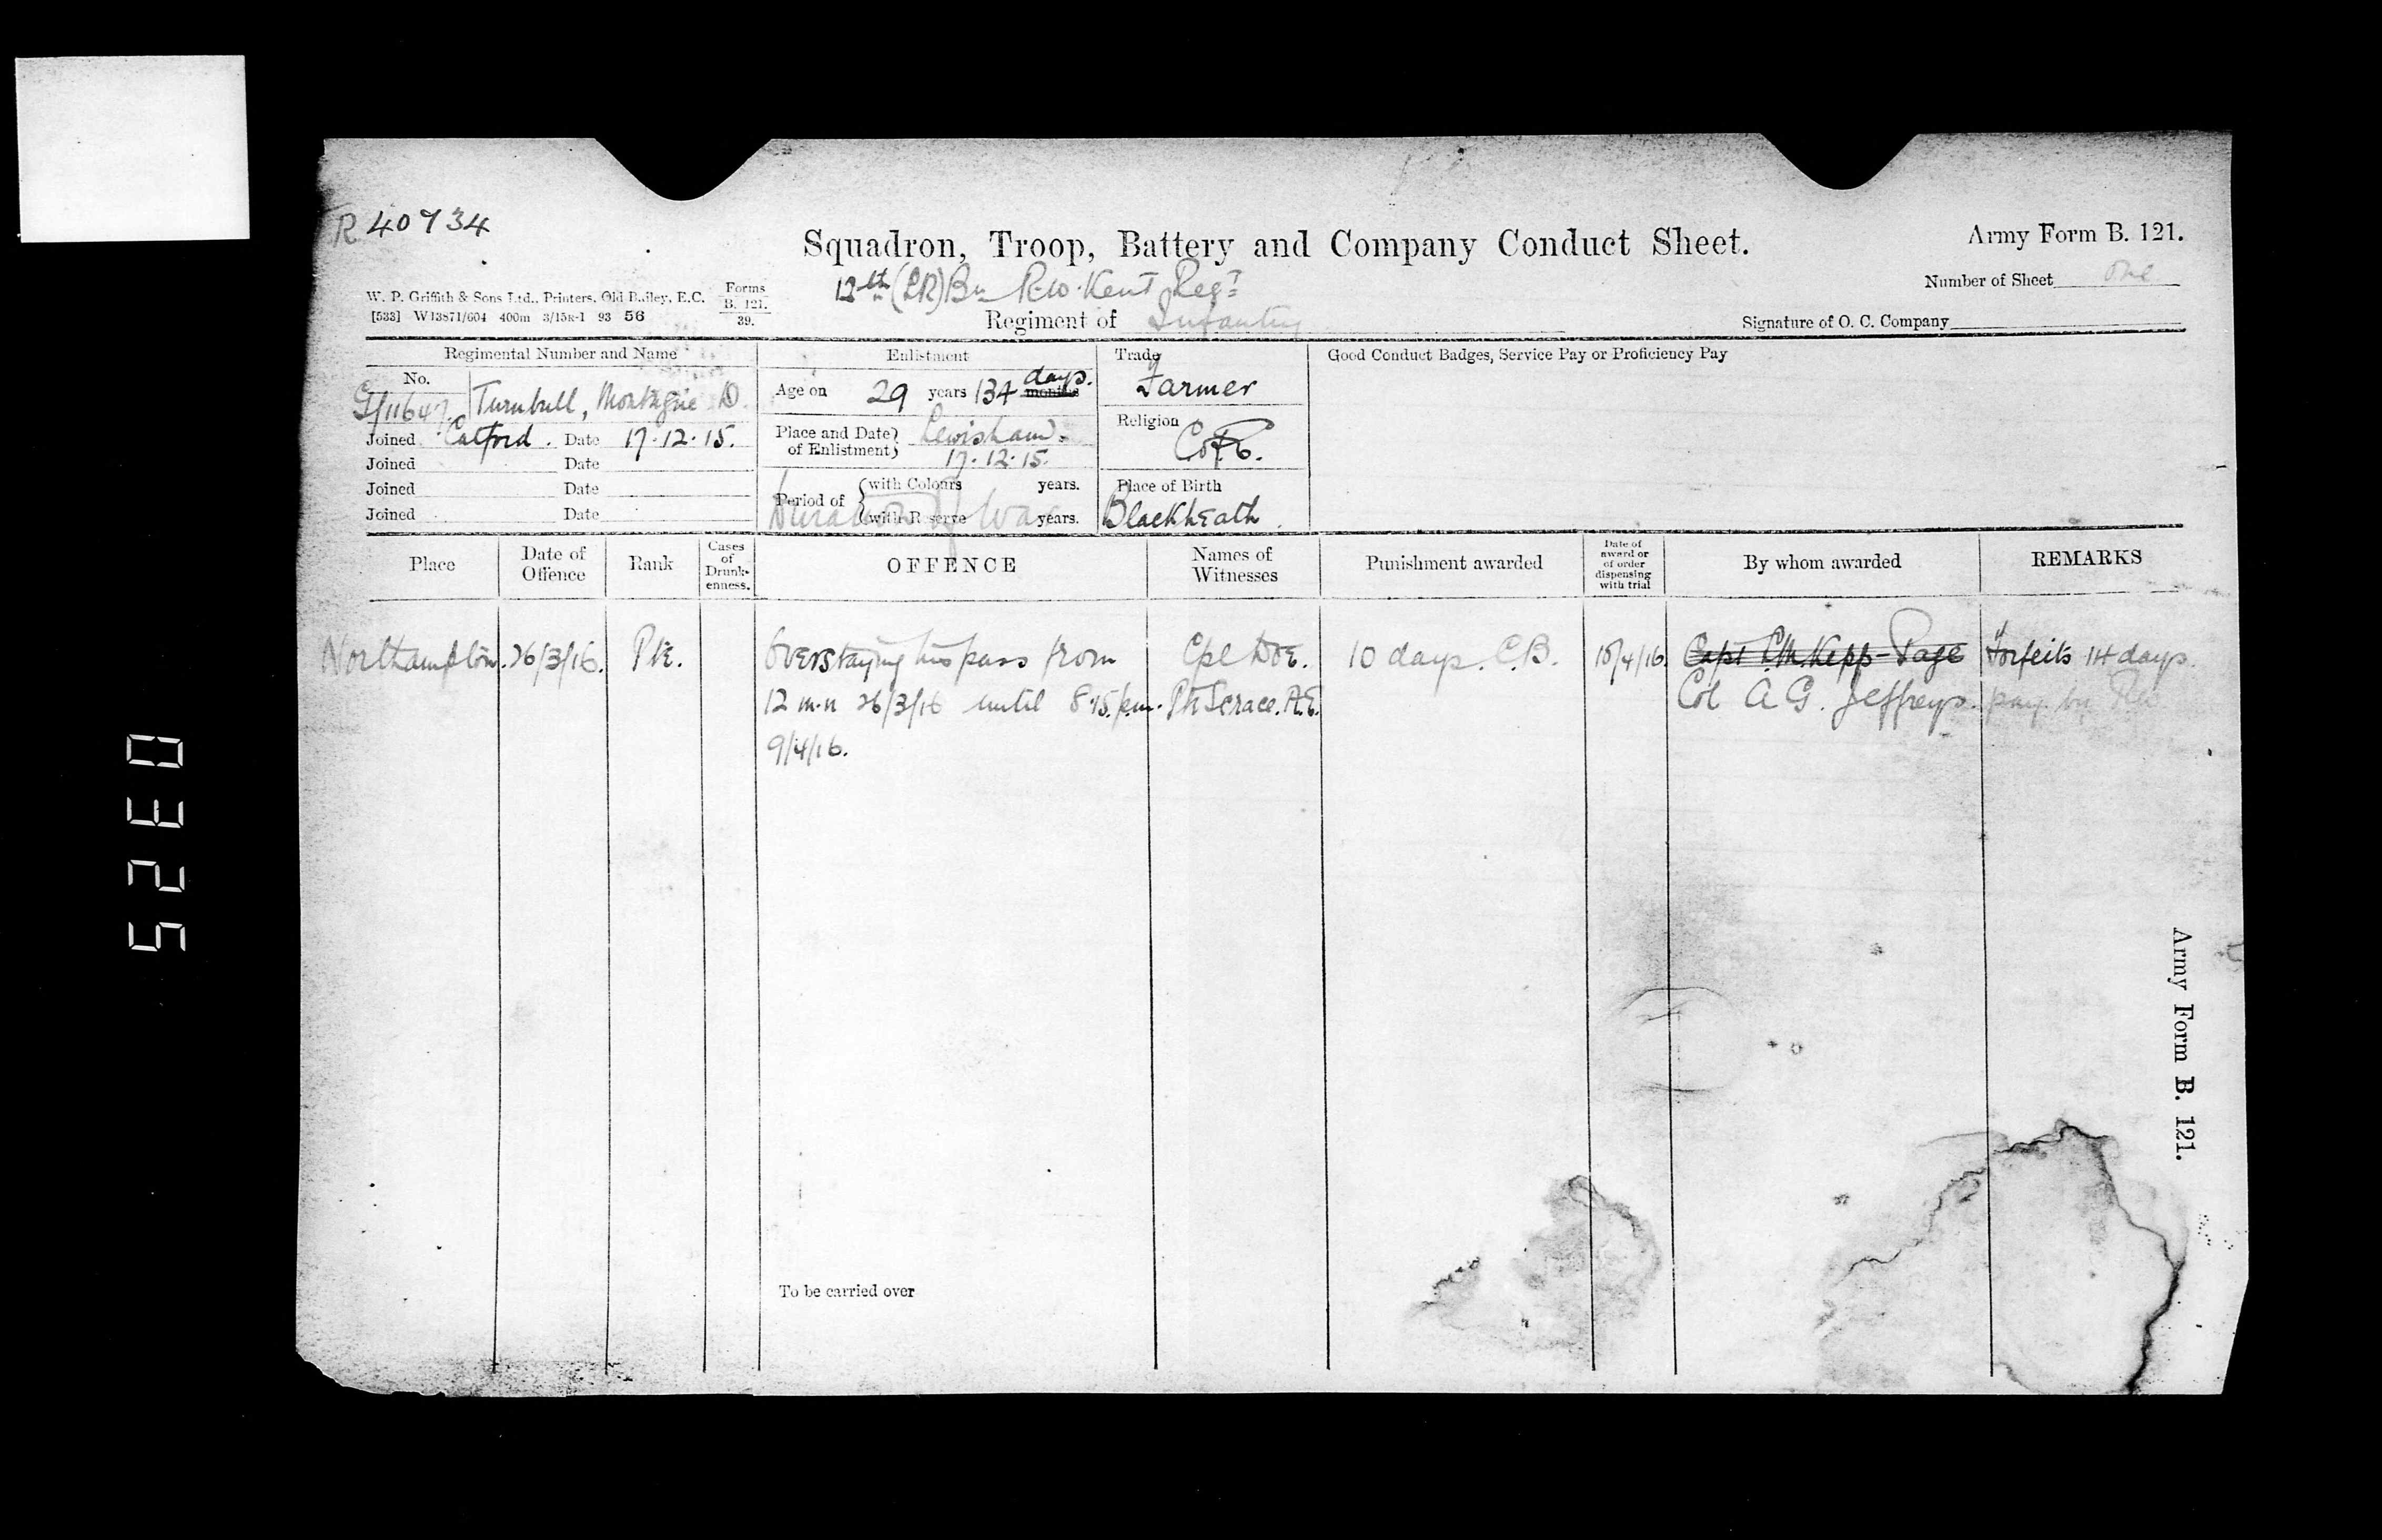 R 40734
Squadron, Troop, Battery and Company Conduct Sheet.
Army Form B. 121.
Number of Sheet one
W. P. Griffith & Sons Ltd., Printers, Old Bailey, E.C.
[533] W13871/604 400m 3/15 93 56
Forms
B. 121.
39.
12th (LR) Bn R.W. Kent Regt
Regiment of Infantry
Signature of O. C. Company
Regimental Number and Name
No.
G/11647 Turnbull, Montague D.
Joined Catford. Date 17.12.15.
Joined Date
Joined Date
Joined Date
Enlistment
Age on 29 years 134 days. months
Place and Date of Enlistment Lewisham.
17.12.15.
Period of with Colours years.
with Reserve years.
Duration of War
Trade
Farmer
Religion
C of E.
Place of Birth
Blackheath
Good Conduct Badges, Service Pay or Proficiency Pay
Place
Date of Offence
Rank
Cases of Drunkenness.
OFFENCE
Names of Witnesses
Punishment awarded
Date of award or of order dispensing with trial
By whom awarded
REMARKS
Northampton. 26/3/16. Pte. Overstaying his pass from Cpl Doe. 10 days. C.B. 10/4/16. Capt Kepp-Page Forfeits 14 days
12 m.n 26/3/16 until 8.15. p.m. Pte Scrace. A.E. Col A G. Jeffreys. pay by RW
9/4/16.
To be carried over
Army Form B. 121.
0325